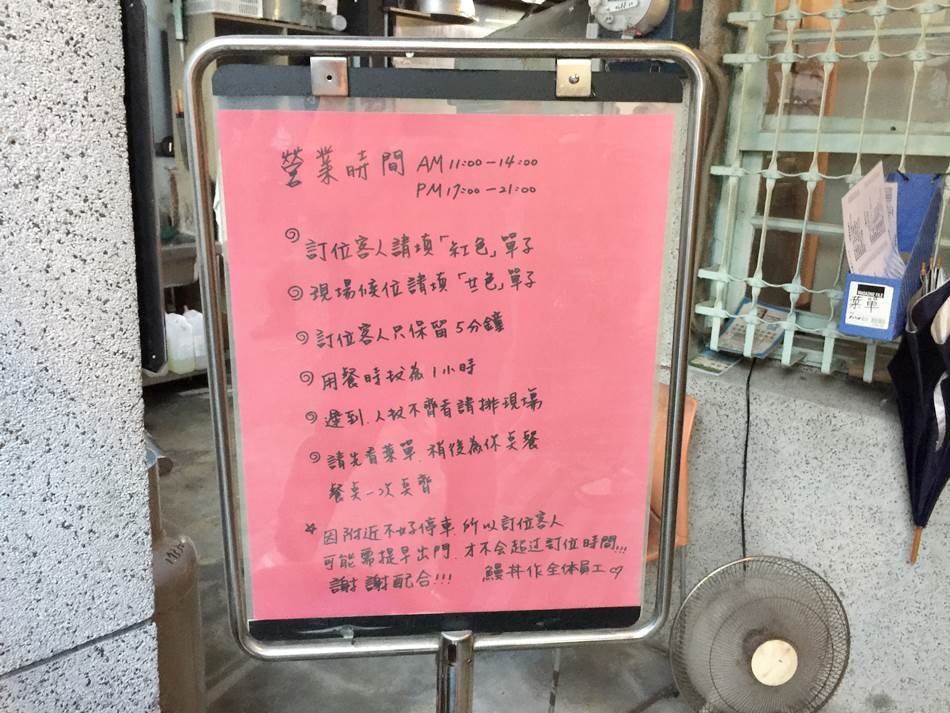 營業時間 AM 11:00-14:00
PM 17:00-21:00
訂位客人請填「紅色」單子
現場候位請填「女色」單子
訂位客人只保留5分鐘
用餐時段為1小時
遲到.人數不齊者請排現場
請先看菜單.稍後為你点餐
餐点一次点齊
☆因附近不好停車.所以訂位客人
可能需提早出門.才不会超过訂位時間!!!
謝謝配合!!!
鰻丼作全体員工♡
菜單